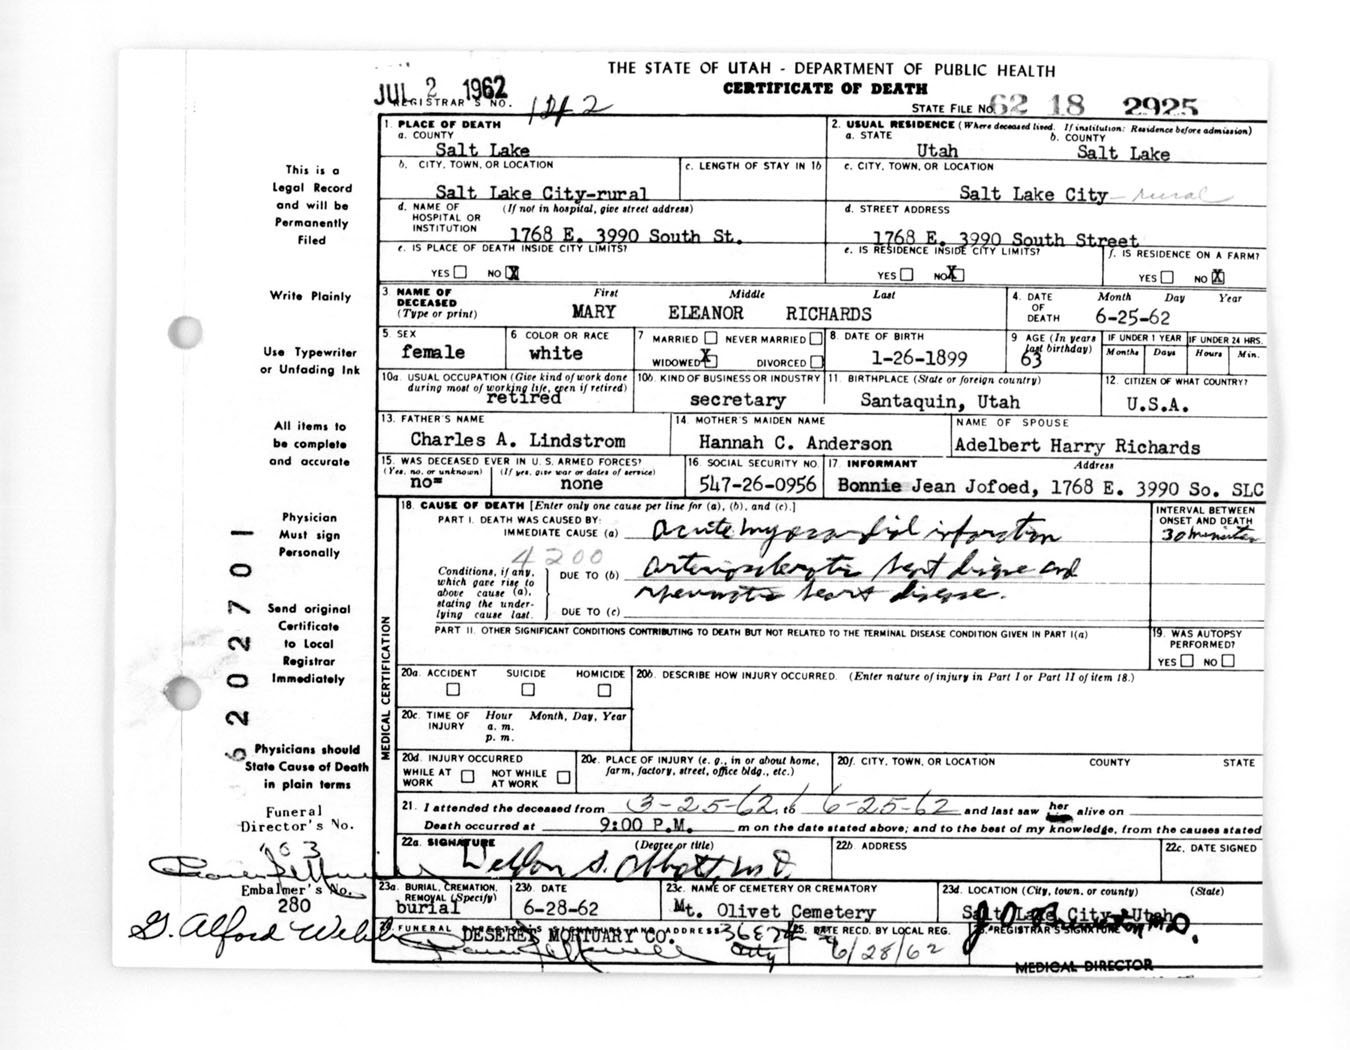 THE STATE OF UTAH - DEPARTMENT OF PUBLIC HEALTH
CERTIFICATE OF DEATH
JUL 2 1962
REGISTRAR'S NO. 1242
STATE FILE NO. 62 18 2925
This is a
Legal Record
and will be
Permanently
Filed
Write Plainly
Use Typewriter
or Unfading Ink
All items to
be complete
and accurate
Physician
Must sign
Personally
Send original
Certificate
to Local
Registrar
Immediately
Physicians should
State Cause of Death
in plain terms
Funeral
Director's No.
Embalmer's No.
280
G. Alford Webb
6202701
1. PLACE OF DEATH
a. COUNTY
Salt Lake
b. CITY, TOWN, OR LOCATION
Salt Lake City-rural
c. LENGTH OF STAY IN 1b
d. NAME OF HOSPITAL OR INSTITUTION (If not in hospital, give street address)
1768 E. 3990 South St.
e. IS PLACE OF DEATH INSIDE CITY LIMITS?
YES NO X
2. USUAL RESIDENCE (Where deceased lived. If institution: Residence before admission)
a. STATE
Utah
b. COUNTY
Salt Lake
c. CITY, TOWN, OR LOCATION
Salt Lake City - rural
d. STREET ADDRESS
1768 E. 3990 South Street
e. IS RESIDENCE INSIDE CITY LIMITS?
YES NO X
f. IS RESIDENCE ON A FARM?
YES NO X
3. NAME OF DECEASED (Type or print)
First Middle Last
MARY ELEANOR RICHARDS
4. DATE OF DEATH Month Day Year
6-25-62
5. SEX
female
6 COLOR OR RACE
white
7 MARRIED NEVER MARRIED
WIDOWED X DIVORCED
8. DATE OF BIRTH
1-26-1899
9 AGE (In years last birthday)
63
IF UNDER 1 YEAR
Months Days
IF UNDER 24 HRS.
Hours Min.
10a. USUAL OCCUPATION (Give kind of work done during most of working life, even if retired)
retired
10b. KIND OF BUSINESS OR INDUSTRY
secretary
11. BIRTHPLACE (State or foreign country)
Santaquin, Utah
12. CITIZEN OF WHAT COUNTRY?
U.S.A.
13. FATHER'S NAME
Charles A. Lindstrom
14. MOTHER'S MAIDEN NAME
Hannah C. Anderson
NAME OF SPOUSE
Adelbert Harry Richards
15. WAS DECEASED EVER IN U. S. ARMED FORCES?
(Yes, no, or unknown) (If yes, give war or dates of service)
no= none
16. SOCIAL SECURITY NO.
547-26-0956
17. INFORMANT Address
Bonnie Jean Jofoed, 1768 E. 3990 So. SLC
MEDICAL CERTIFICATION
18. CAUSE OF DEATH [Enter only one cause per line for (a), (b), and (c).]
PART I. DEATH WAS CAUSED BY:
IMMEDIATE CAUSE (a) Acute myocardial infarction
INTERVAL BETWEEN ONSET AND DEATH
30 minutes
4200
Conditions, if any, which gave rise to above cause (a), stating the underlying cause last.
DUE TO (b) Arteriosclerotic heart disease and
rheumatic heart disease.
DUE TO (c)
PART II. OTHER SIGNIFICANT CONDITIONS CONTRIBUTING TO DEATH BUT NOT RELATED TO THE TERMINAL DISEASE CONDITION GIVEN IN PART I(a)
19. WAS AUTOPSY PERFORMED?
YES NO
20a. ACCIDENT SUICIDE HOMICIDE
20b. DESCRIBE HOW INJURY OCCURRED. (Enter nature of injury in Part I or Part II of item 18.)
20c. TIME OF INJURY Hour Month, Day, Year
a. m.
p. m.
20d. INJURY OCCURRED
WHILE AT WORK NOT WHILE AT WORK
20e. PLACE OF INJURY (e. g., in or about home, farm, factory, street, office bldg., etc.)
20f. CITY, TOWN, OR LOCATION COUNTY STATE
21. I attended the deceased from 3-25-62, to 6-25-62 and last saw her alive on
Death occurred at 9:00 P.M. m on the date stated above; and to the best of my knowledge, from the causes stated
22a. SIGNATURE (Degree or title)
M D.
22b. ADDRESS
22c. DATE SIGNED
23a. BURIAL, CREMATION, REMOVAL (Specify)
burial
23b. DATE
6-28-62
23c. NAME OF CEMETERY OR CREMATORY
Mt. Olivet Cemetery
23d. LOCATION (City, town, or county) (State)
Salt Lake City, Utah
24. FUNERAL DIRECTOR'S SIGNATURE AND ADDRESS
DESERET MORTUARY CO.
City
25. DATE RECD. BY LOCAL REG.
6/28/62
26. REGISTRAR'S SIGNATURE
MEDICAL DIRECTOR